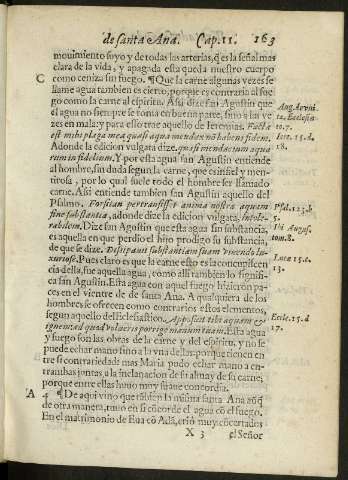 de santa Ana. Cap. 11. 163
mouimiento suyo y de todas las arterias, q̃ es la señal mas
clara de la vida, y apagada esta queda nuestro cuerpo
C como ceniza sin fuego. ¶ Que la carne algunas vezes se
llame agua tambien es cierto, porque es contraria al fue
go como la carne al espiritu. Assi dize san Agustin que
el agua no siempre se toma en buena parte, sino a las ve
zes en mala: y para esto trae aquello de Ieremias. Facta
est mihi plaga mea quasi aqua mendax nõ habens fidem,
Adonde la edicion vulgata dize, quasi mendacium aqua
rum infidelium. Y por esta agua san Agustin entiende
al hombre, sin duda segun la carne, que es infiel y men-
tirosa, por lo qual suele todo el hombre ser llamado
carne. Assi entiende tambien san Agustin aquello del
Psalmo. Forsitan pertransisset anima nostra aquam
sine substantia, adonde dize la edicion vulgata, intole-
rabilem. Dize san Agustin que esta agua sin substancia,
es aquella en que perdio el hijo prodigo su substancia,
de que se dize. Dissipauit substantiam suam viuendo lu-
xuriose. Pues claro es que la carne esto es la concupiscen
cia della, fue aquella agua, como alli tambien lo signifi-
ca san Agustin. Esta agua con aquel fuego hizieron pa-
zes en el vientre de de santa Ana. A qualquiera de los
hombres se ofrecen como contrarios estos elementos,
segun aquello del Eclesiastico. Apposuit tibi aquam &
ignem: ad quod volueris porrige manum tuam. Esta agua
y fuego son las obras de la carne y del espiritu, y no se
puede echar mano sino a la vna dellas: porque tienen en
tre si contrariedad: mas Maria pudo echar mano a en-
trambas juntas, a la inclinacion de su alma y de su carne,
porque entre ellas huuo muy suaue concordia.
A 4 ¶ De aqui vino que tãbien la misma santa Ana aũq̃
de otra manera, tuuo en si cõcorde el agua cõ el fuego.
En el matrimonio de Eua cõ Adã, crió muy cõcertados
X 3 el Señor
Aug. Arvui
Ecclesia
to.7.
Iere. 15. d.
18.
Psal. 123. b
5.
Vbi Augus.
tom. 8.
Lucæ 15. a
13.
Eccle. 15. d
17.